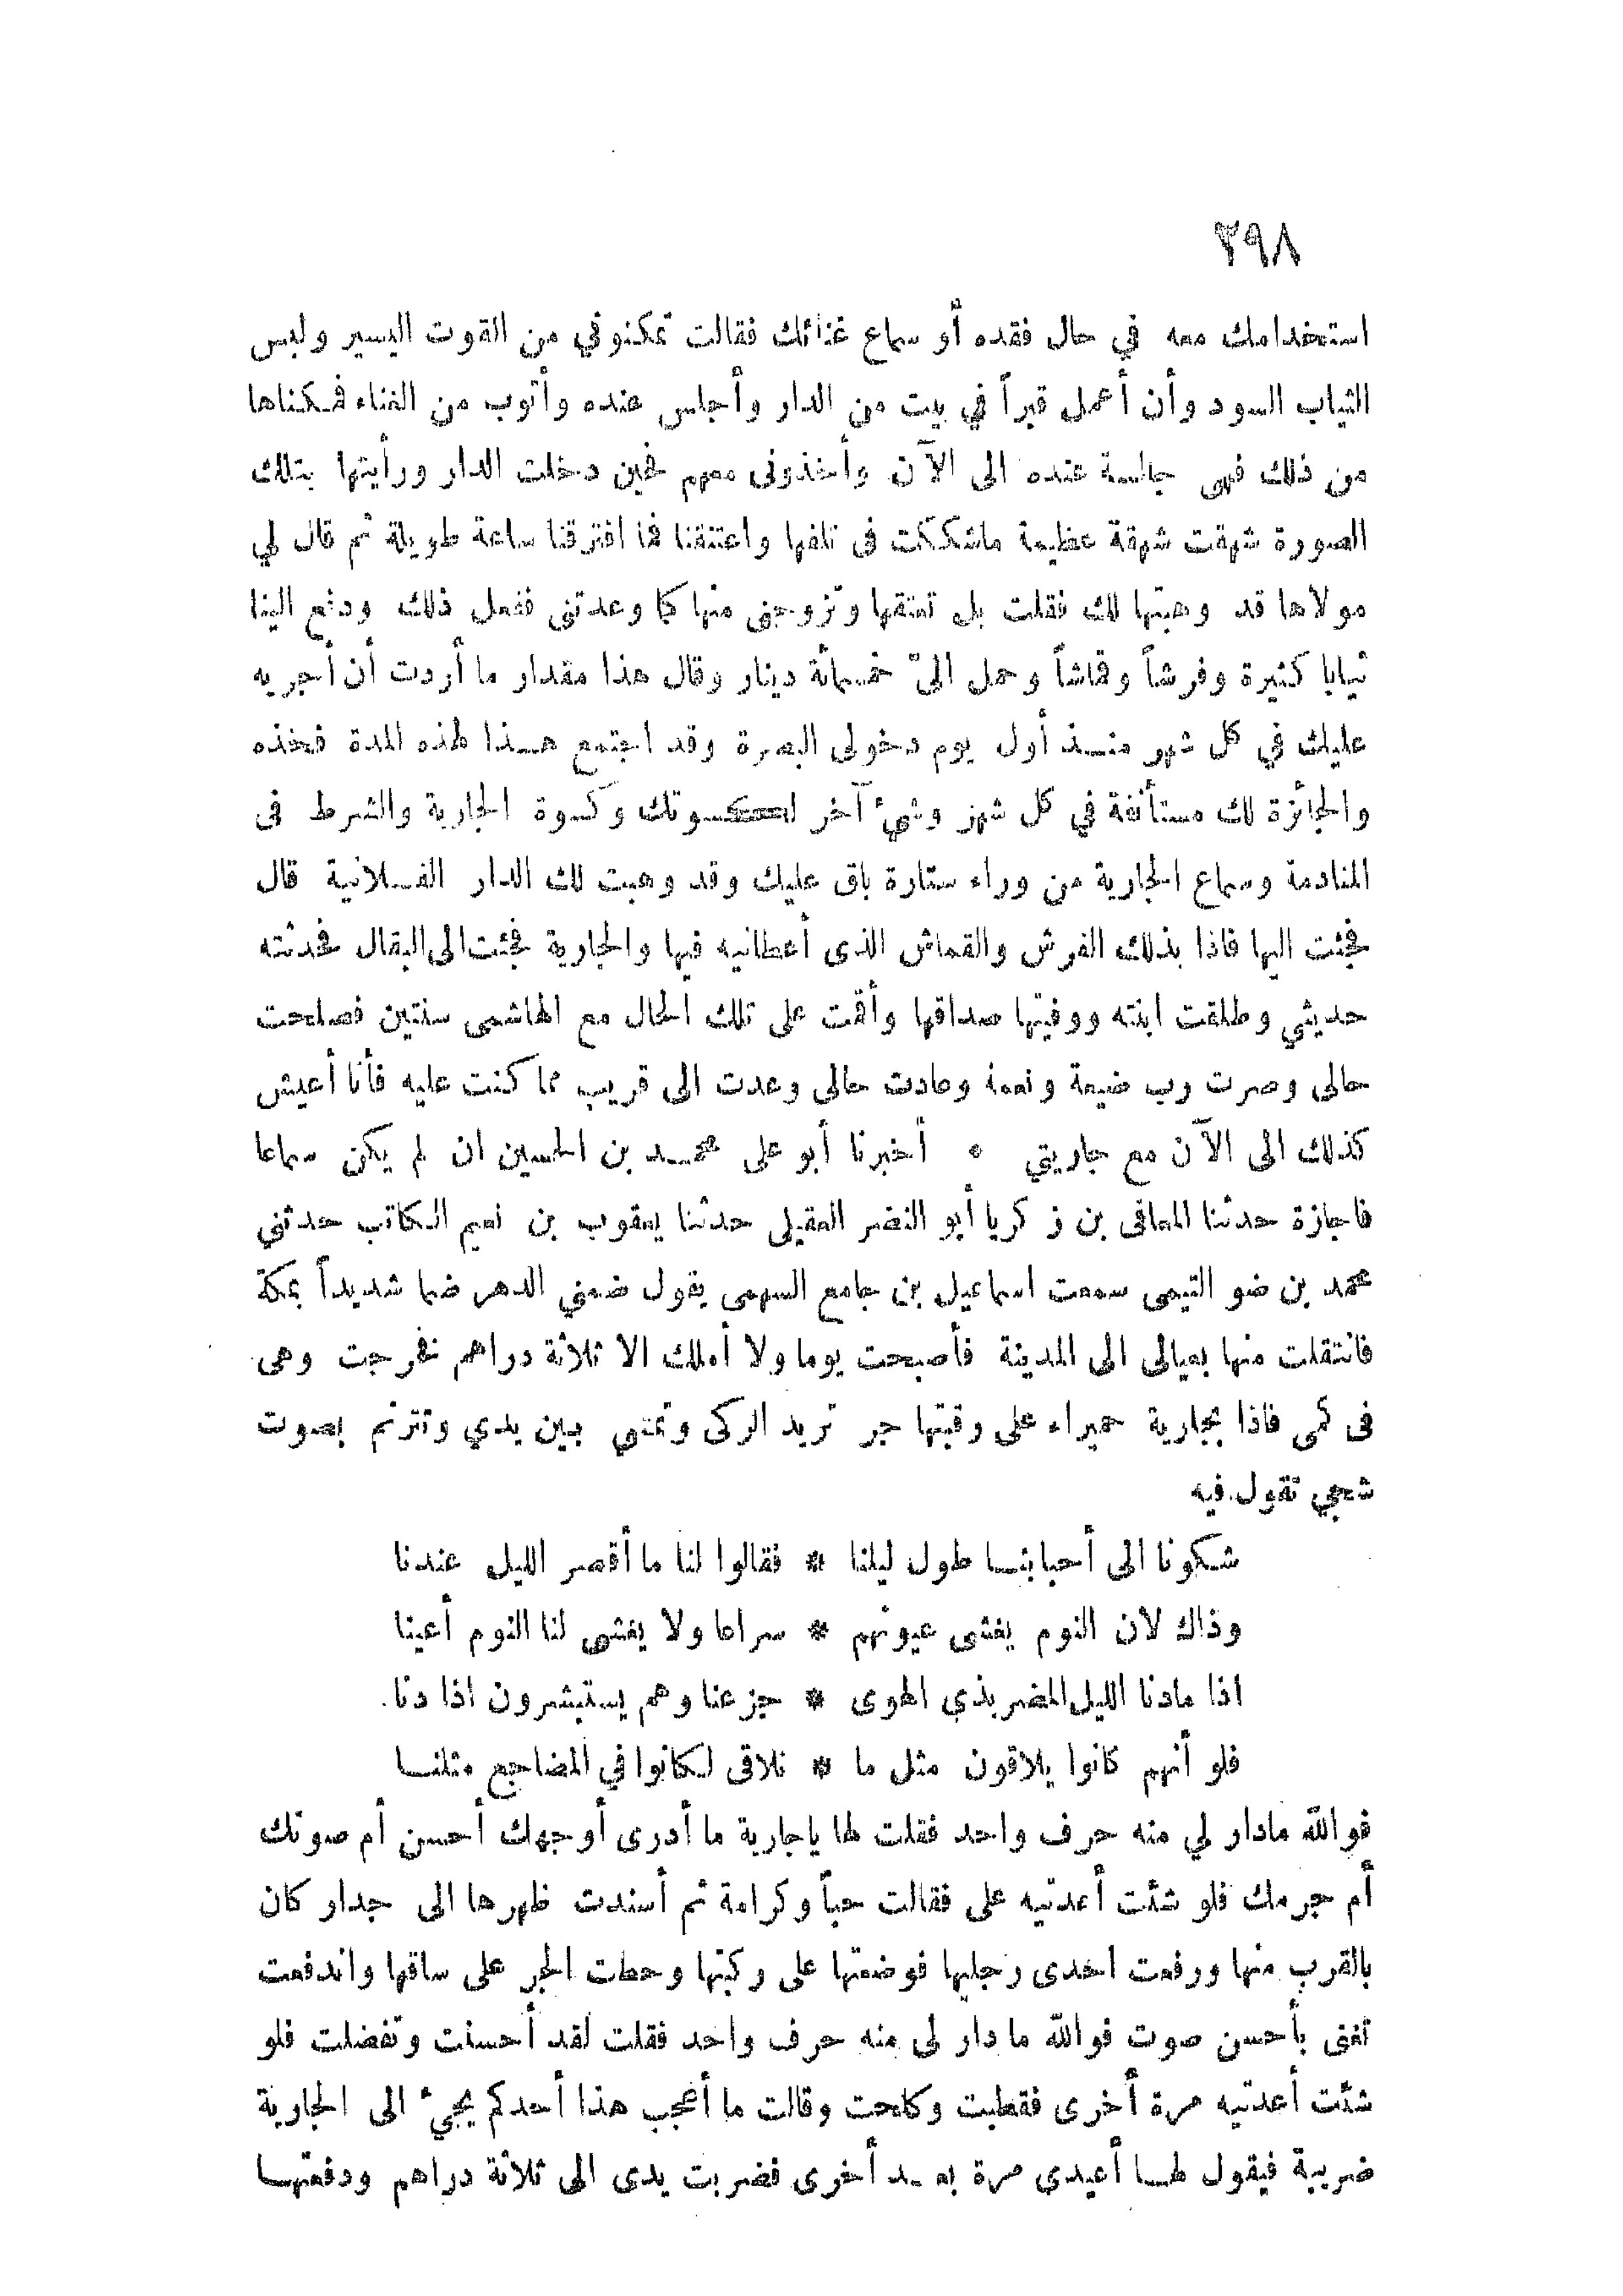 ٣٩٨
استخدامك معه في حال فقده أو سماع غنائك فقالت تمكنوني من القوت اليسير ولبس
الثياب السود وأن أعمل قبراً في بيت من الدار وأجلس عنده وأتوب من الغناء فمكناها
من ذلك فهى جالسة عنده الى الآن وأخذونى معهم فحين دخلت الدار ورأيتها بتلك
الصورة شهقت شهقة عظيمة ماشككت فى تلفها واعتنقنا فما افترقنا ساعة طويلة ثم قال لي
مولاها قد وهبتها لك فقلت بل تعتقها وتزوجنى منها كما وعدتنى ففعل ذلك ودفع الينا
ثيابا كثيرة وفرشاً وقماشاً وحمل الىّ خمسمائة دينار وقال هذا مقدار ما أردت أن أجريه
عليك في كل شهر منذ أول يوم دخولى البصرة وقد اجتمع هذا لهذه المدة فخذه
والجائزة لك مستأنفة في كل شهر وشئ آخر لكسوتك وكسوة الجارية والشرط فى
المنادمة وسماع الجارية من وراء ستارة باق عليك وقد وهبت لك الدار الفلانية قال
فجئت اليها فاذا بذلك الفرش والقماش الذى أعطانيه فيها والجارية فجئت الى البقال فحدثته
حديثي وطلقت ابنته ووفيتها صداقها وأقمت على تلك الحال مع الهاشمى سنتين فصلحت
حالى وصرت رب ضيعة ونعمة وعادت حالى وعدت الى قريب مما كنت عليه فأنا أعيش
كذلك الى الآن مع جاريتي ٥ أخبرنا أبو على محمد بن الحسين ان لم يكن سماعا
فاجازة حدثنا المعافى بن زكريا أبو النضر العقيلى حدثنا يعقوب بن نعيم الكاتب حدثني
محمد بن ضو التيمى سمعت اسماعيل بن جامع السهمى يقول ضمني الدهر ضما شديداً بمكة
فانتقلت منها بعيالى الى المدينة فأصبحت يوما ولا أملك الا ثلاثة دراهم فخرجت وهى
فى كمى فاذا بجارية حميراء على رقبتها جر تريد الركى وتمشي بين يدي وتترنم بصوت
شجي تقول فيه
شكونا الى أحبابنا طول ليلنا * فقالوا لنا ما أقصر الليل عندنا
وذاك لان النوم يغشى عيونهم * سراعا ولا يغشى لنا النوم أعينا
اذا مادنا الليل المضر بذي الهوى * جزعنا وهم يستبشرون اذا دنا
فلو أنهم كانوا يلاقون مثل ما * نلاقى لكانوا في المضاجع مثلنا
فوالله مادار لي منه حرف واحد فقلت لها ياجارية ما أدرى أوجهك أحسن أم صوتك
أم جرمك فلو شئت أعدتيه على فقالت حباً وكرامة ثم أسندت ظهرها الى جدار كان
بالقرب منها ورفعت احدى رجليها فوضعتها على ركبتها وحطت الجر على ساقها واندفعت
تغنى بأحسن صوت فوالله ما دار لى منه حرف واحد فقلت لقد أحسنت وتفضلت فلو
شئت أعدتيه مرة أخرى فقطبت وكلحت وقالت ما أعجب هذا أحدكم يجئ الى الجارية
ضريبة فيقول لها أعيدى مرة بعد أخرى فضربت يدى الى ثلاثة دراهم ودفعتها